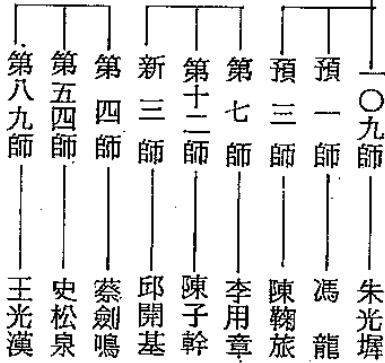 一〇九師 朱光墀
預一師 馮龍
預三師 陳鞠旅
第七師 李用章
第十二師 陳子幹
新三師 邱開基
第四師 蔡劍鳴
第五四師 史松泉
第八九師 王光漢